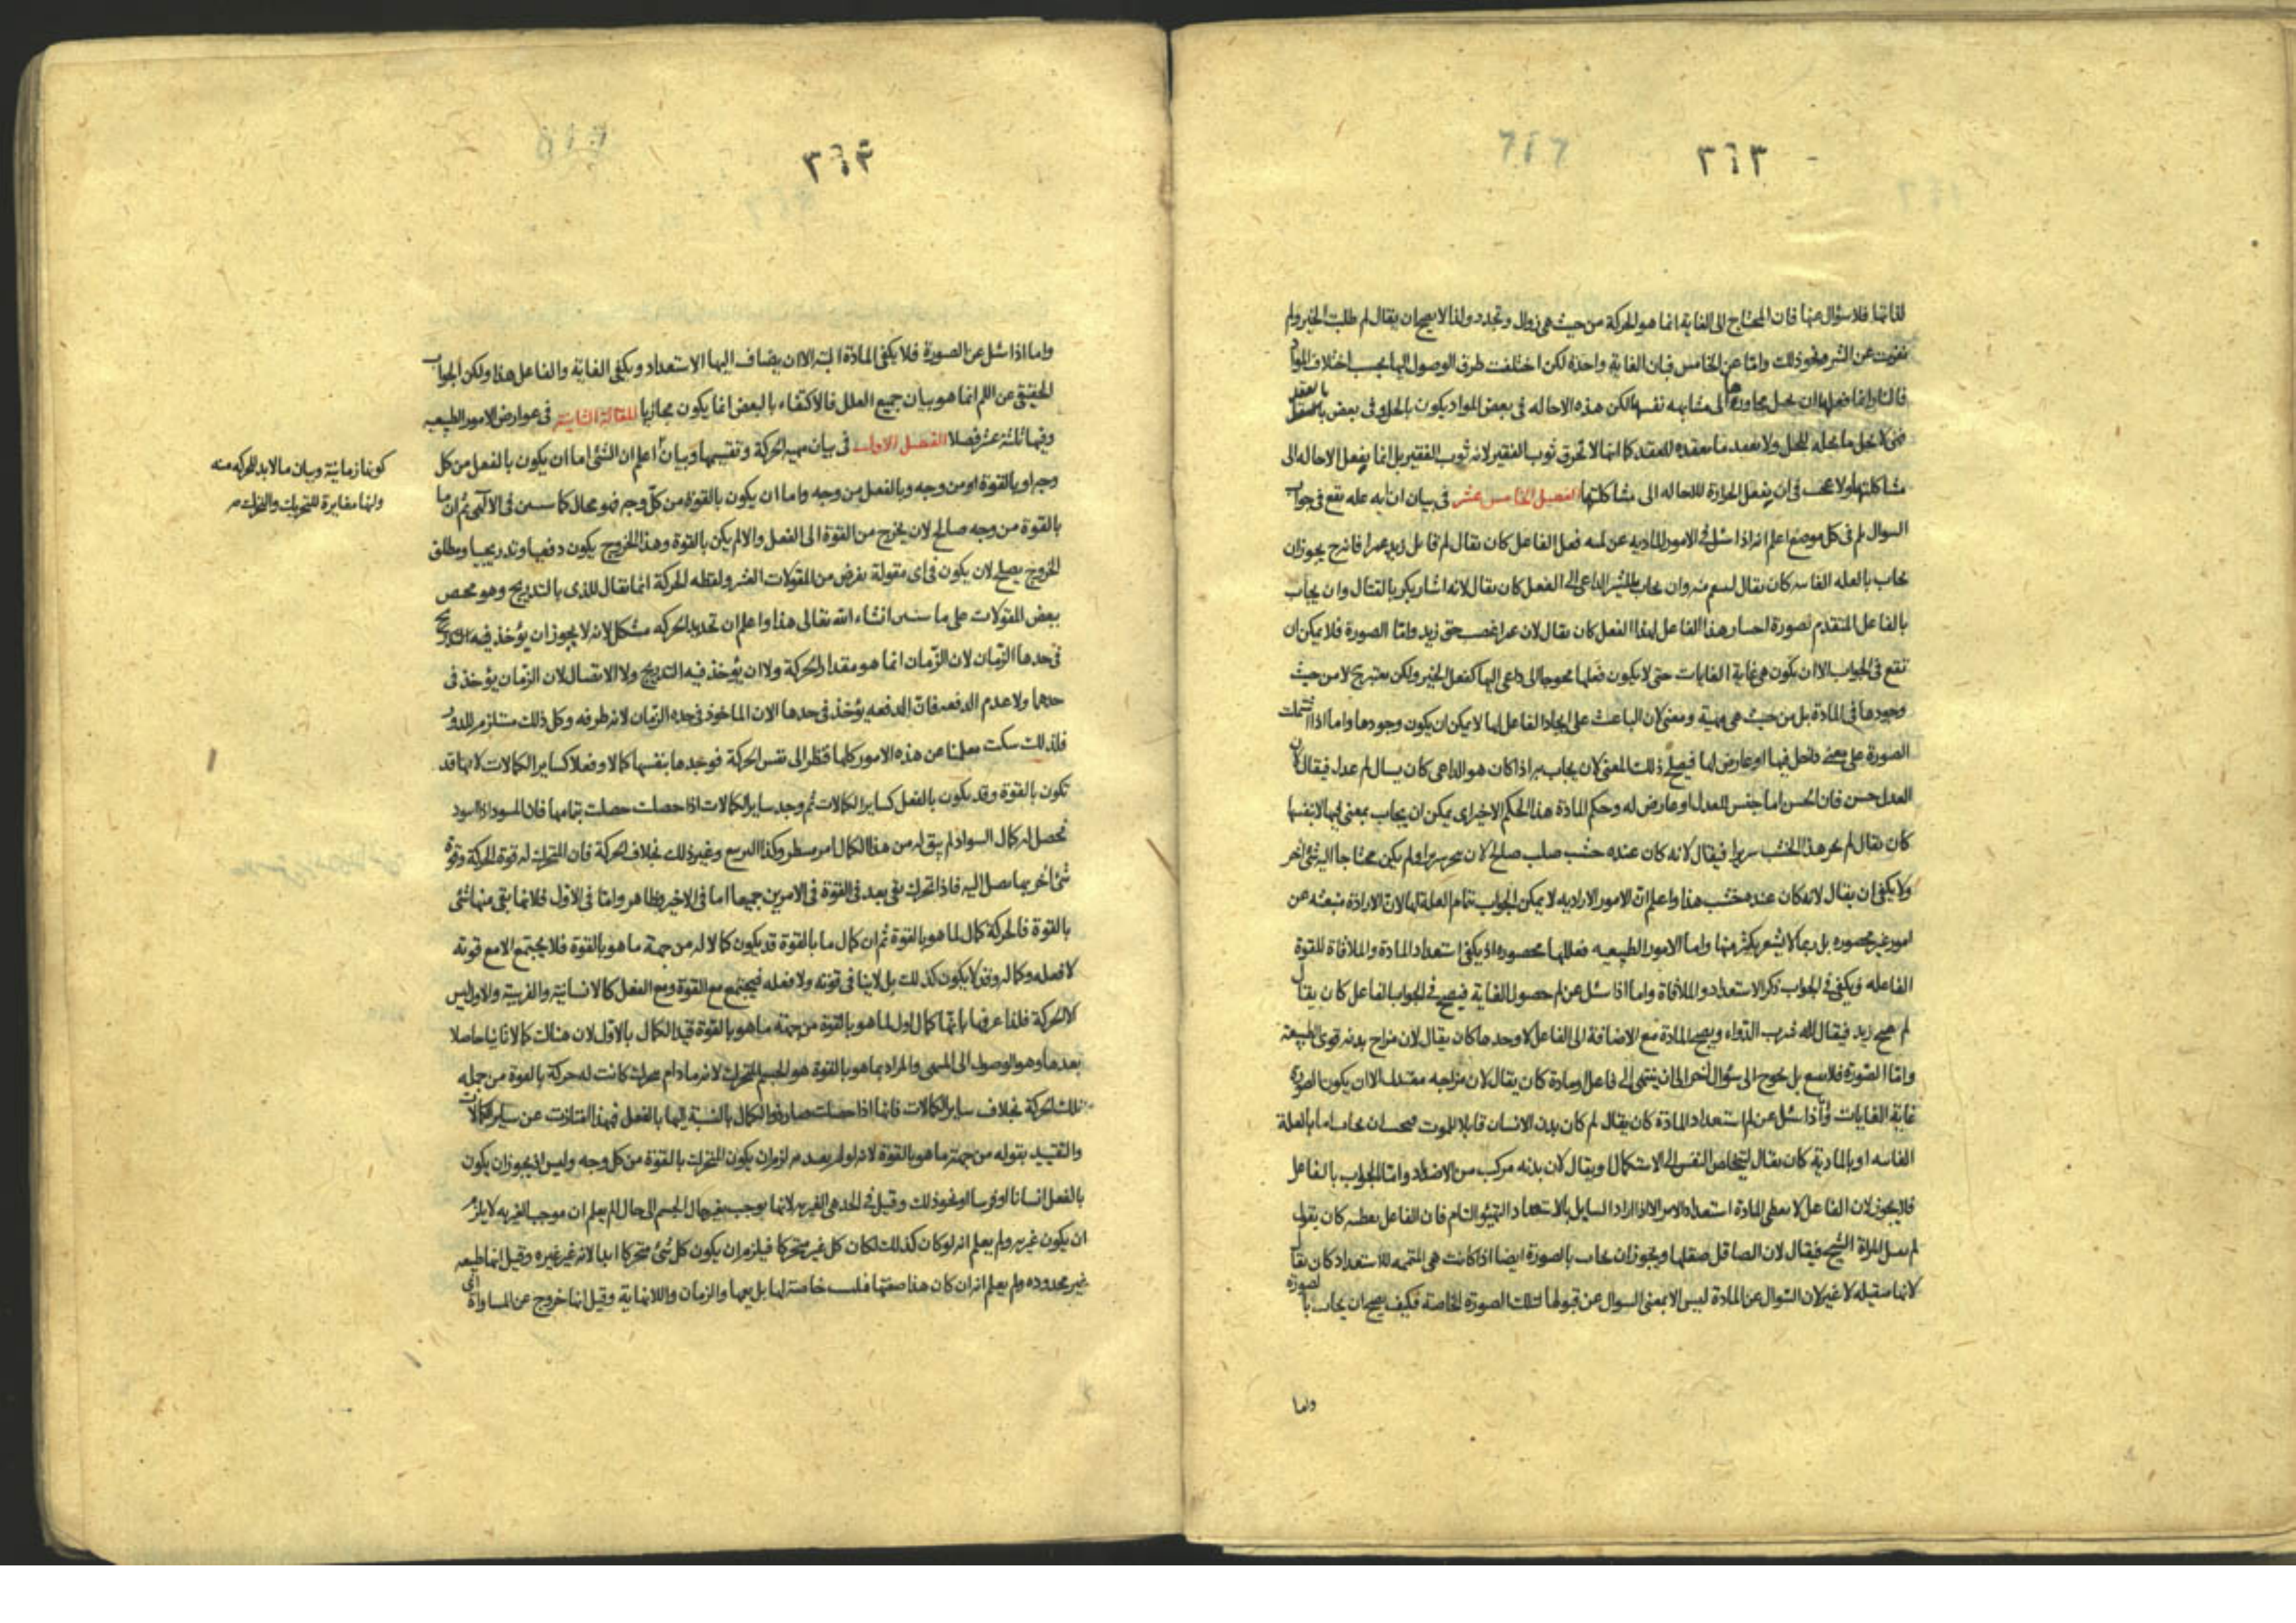 ٣٤٣
لذاتها فلا سؤال عنها فان المحتاج الى الغاية انما هو الحركة من حيث هى زوال وتجدد ولذا لا يصح ان يقال لم طلبت الخير ولم
نفرت عن الشر ونحو ذلك واما عن الخامس فبان الغاية واحدة لكن اختلفت طرق الوصول اليها بحسب اختلاف المواد
فالنار انما فعلها ان تحيل مجاورها الى مشابهه نفسها لكن هذه الاحاله فى بعض المواد يكون بالحل وفى بعض بالعقد
فهى لا تحل ما تحله للحل ولا تعقد ما تعقده للعقد كما انها لا تحرق ثوب الفقير لانه ثوب الفقير بل انما يفعل الاحاله الى
مشاكلتها ولا عجب فى ان يفعل الحرارة للاحاله الى مشاكلتها الفصل الخامس عشر فى بيان ان ايه عله تقع فى جواب
السوال بلم فى كل موضع اعلم انه اذا سئل فى الامور الاراديه عن لميه فعل الفاعل كان يقال لم قاتل زيد عمرا فانه يجوز ان
يجاب بالعله الغائيه كان يقال لينتقم منه وان يجاب بالمشير الداعى الى الفعل كان يقال لانه اشار بكر بالقتال وان يجاب
بالفاعل المتقدم لصورة اختيار هذا الفاعل لهذا الفعل كان يقال لان عمرا غصب حق زيد واما الصورة فلا يمكن ان
تقع فى الجواب الا ان تكون هى غاية الغايات حتى لا يكون فعلها محوجا الى داعى اليها كفعل الخير ولكن يعتبر ح لا من حيث
وجودها فى المادة بل من حيث هى مهية ومعنى لان الباعث على ايجاد الفاعل لها لا يمكن ان يكون وجودها واما اذا اشتملت
الصورة على معنى داخل فيها او عارض لها فيصلح ذلك المعنى لان يجاب به اذا كان هو الداعى كان يسال لم عدل فيقال لان
العدل حسن فان الحسن اما جنس للعدل او عارض له وحكم المادة هذا الحكم الاخير اى يمكن ان يجاب بمعنى فيها لا بنفسها
كان يقال لم نجر هذا الخشب سريرا فيقال لانه كان عنده خشب صلب صلح لان ينجر سريرا ولم يكن محتاجا اليه شئ اخر
ولا يكفى ان يقال لانه كان عنده خشب هذا واعلم ان الامور الاراديه لا يمكن الجواب بتمام العلة لها لان الارادة منبعثه عن
امور غير محصوره بل ربما لا يشعر بكثير منها واما الامور الطبيعيه فعللها محصوره اذ يكفى استعداد المادة والملاقاة للقوة
الفاعله ويكفى فى الجواب ذكر الاستعداد والملاقاة واما اذا سئل عن لم حصول الغاية فيصح فى الجواب الفاعل كان يقال
لم صح زيد فيقال لانه شرب الدواء ويصح المادة مع الاضافة الى الفاعل لا وحدها كان يقال لان مزاج بدنه قوى الطبيعة
واما الصورة فلا يسع بل يحوج الى سؤال اخر الى ان ينتهى الى فاعل ومادة كان يقال لان مزاجه معتدل الا ان يكون الصورة
غاية الغايات واذا سئل عن لم استعداد المادة كان يقال لم كان بدن الانسان قابلا للموت فيحسن ان يجاب اما بالعلة
الغائيه او بالمادية كان يقال ليتخلص النفس الى الاستكمال او يقال لان بدنه مركب من الاضداد واما الجواب بالفاعل
فلا يجوز لان الفاعل لا يعطى المادة استعدادا لامر الا اذا اراد السايل بالاستعداد التهيؤ التام فان الفاعل يعطيه كان يقول
لم تقبل المراة الشبح فيقال لان الصاقل صقلها ويجوز ان يجاب بالصورة ايضا اذا كانت هى المتممه للاستعداد كان يقال
لانها صقيله لا غير لان السؤال عن المادة ليس الا بمعنى السوال عن قبولها لتلك الصورة الخاصة فكيف يصح ان يجاب بالصورة
واما
٣٤٤
واما اذا سئل عن الصورة فلا يكفى المادة البته الا ان يضاف اليها الاستعداد ويكفى الغاية والفاعل هذا ولكن الجواب
الحقيقى عن اللم انما هو ببيان جميع العلل فالاكتفاء بالبعض انما يكون مجازيا المقالة الثانية فى عوارض الامور الطبيعيه
وفيها ثلثة عشر فصلا الفصل الاول فى بيان مهية الحركة وتقسيمها وبيان اعلم ان الشئ اما ان يكون بالفعل من كل
كونها زمانية وبيان ما لا بد للحركه منه
وانها مغايرة للتحريك والتحرك صح
وجه او بالقوة او من وجه وبالفعل من وجه واما ان يكون بالقوة من كل وجه فهو محال كما سيبين فى الالهى ثم ان ما
بالقوة من وجه صالح لان يخرج من القوة الى الفعل والا لم يكن بالقوة وهذا الخروج يكون دفعيا وتدريجيا ومطلق
الخروج يصلح لان يكون فى اى مقولة يفرض من المقولات العشر ولفظه الحركة انما يقال للذى بالتدريج وهو مختص
ببعض المقولات على ما سنبين انشاء الله تعالى هذا واعلم ان تحديد الحركه مشكل لانه لا يجوز ان يؤخذ فيه التدريج
فى حدها الزمان لان الزمان انما هو مقدار الحركة ولا ان يؤخذ فيه التدريج ولا الاتصال لان الزمان يؤخذ فى
حدهما ولا عدم الدفعه فان الدفعه يؤخذ فى حدها الان الماخوذ فى حده الزمان لانه طرفه وكل ذلك مستلزم للدور
فلذلك سكت معلمنا عن هذه الامور كلها فنظر الى نفس الحركة فوجدها بنفسها كمالا وفعلا كساير الكمالات لانها قد
تكون بالقوة وقد يكون بالفعل كساير الكمالات ثم وجد ساير الكمالات اذا حصلت حصلت بتمامها فان المسود اذا اسود
تحصل له كمال السواد لم يبق له من هذا الكمال امر منتظر وكذا المربع وغير ذلك بخلاف الحركة فان المتحرك له قوة الحركة وقوة
شئ اخر بها يصل اليه فاذا تحرك بقى بعد فى القوة فى الامرين جميعا اما فى الاخير فظاهر واما فى الاول فلانها بقى منها شئ
بالقوة فالحركة كمال لما هو بالقوة ثم ان كمال ما بالقوة قد يكون كمالا له من جهة ما هو بالقوة فلا يجتمع الا مع قوته
لا فعله وكماله وقد لا يكون كذلك بل لا ينافى قوته ولا فعله فيجتمع مع القوة ومع الفعل كالانسانية والفرسية والاول ليس
الا الحركة فلذا عرفها بانها كمال اول لما هو بالقوة من جهة ما هو بالقوة قيد الكمال بالاول لان هناك كمالا ثانيا حاصلا
بعدها وهو الوصول الى المنتهى والمراد بما هو بالقوة هو الجسم المتحرك لانه ما دام يتحرك كانت له حركة بالقوة من جمله
تلك الحركة بخلاف ساير الكمالات فانها اذا حصلت صار ذو الكمال بالنسبة اليها بالفعل فبهذا امتازت عن ساير الكمالات
والتقييد بقوله من جهة ما هو بالقوة لانه لو لم يقيد به لزم ان يكون المتحرك بالقوة من كل وجه وليس اذ يجوز ان يكون
بالفعل انسانا او فرسا او نحو ذلك وقيل فى الحد هى الغيريه لانها يوجب تغير حال الجسم الى حال ولم يعلم ان موجب الغيريه لا يلزم
ان يكون غيريه ولم يعلم انه لو كان كذلك لكان كل غير متحركا فيلزم ان يكون كل شئ متحركا ابدا لانه غير غيره وقيل انها طبيعه
غير محدوده ولم يعلم انه ان كان هذا صفتها فليست خاصة لها بل يعمها والزمان واللانهاية وقيل انها خروج عن المساواة اى